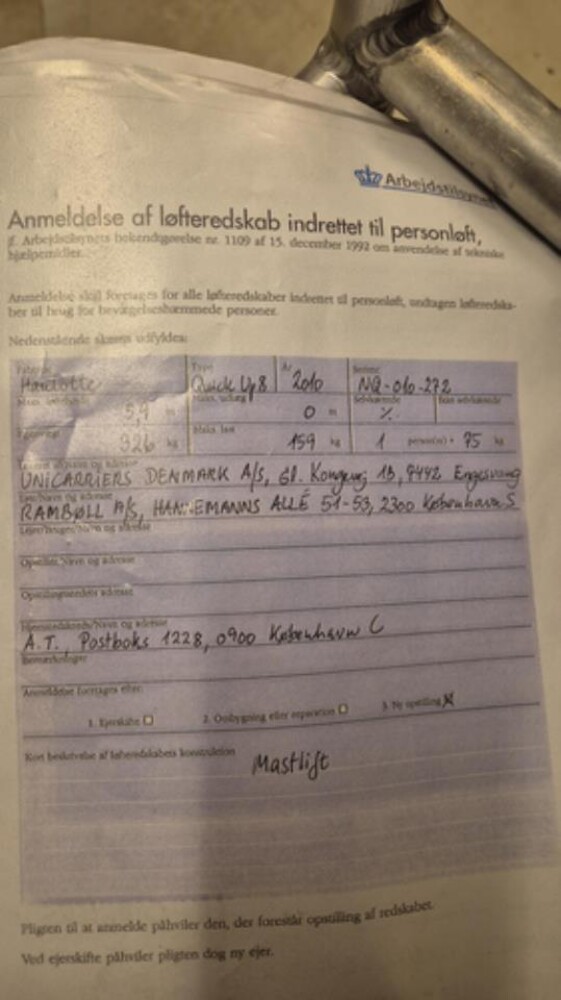 Arbejdstilsynet
Anmeldelse af løfteredskab indrettet til personløft,
jf. Arbejdstilsynets bekendtgørelse nr. 1109 af 15. december 1992 om anvendelse af tekniske
hjælpemidler.
Anmeldelse skal foretages for alle løfteredskaber indrettet til personløft, undtagen løfteredska-
ber til brug for bevægelseshæmmede personer.
Nedenstående skema udfyldes:
Type År
Haulotte Quick Up 8 2010 NQ-010-272
Maks. udlæg
5,4 m 0 m %
Egenvægt Maks. last
326 kg 159 kg 1 person(er) = 75 kg
UNICARRIERS DENMARK A/S, Gl. Kongevej 1B, 7442 Engesvang
RAMBØLL A/S, HANNEMANNS ALLÉ 51-53, 2300 København S
Lejer/Bruger/Navn og adresse
Opstiller/Navn og adresse
Opstillingsstedets adresse
A.T., Postboks 1228, 0900 København C
Bemærkninger
Anmeldelse foretages efter:
1. Ejerskifte 2. Ombygning eller reparation 3. Ny opstilling X
Kort beskrivelse af løfteredskabets konstruktion
Mastlift
Pligten til at anmelde påhviler den, der forestår opstilling af redskabet.
Ved ejerskifte påhviler pligten dog ny ejer.